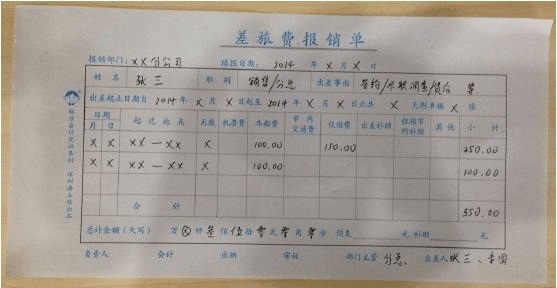 差旅费报销单
报销部门: XX分公司 填报日期: 2014 年 X 月 X 日
姓名 张三 职别 销售/分总 出差事由 签约/尽职调查/贷后 等
出差起止日期自 2014年 X 月 X 日起至 2014 年 X 月 X 日止共 X 天附单据 X 张
日期 起讫地点 天数 机票费 车船费 市内交通费 住宿费 出差补助 住宿节约补助 其他 小计
月 日
X X XX—XX X 100.00 150.00 250.00
X X XX—XX X 100.00 100.00
合计 350.00
总计金额(大写) 万 ⊗ 仟 叁 佰 伍 拾 零 元 零 角 零 分 预支 元 补助 元
负责人 会计 出纳 审核 部门主管 分总 出差人 张三、李四